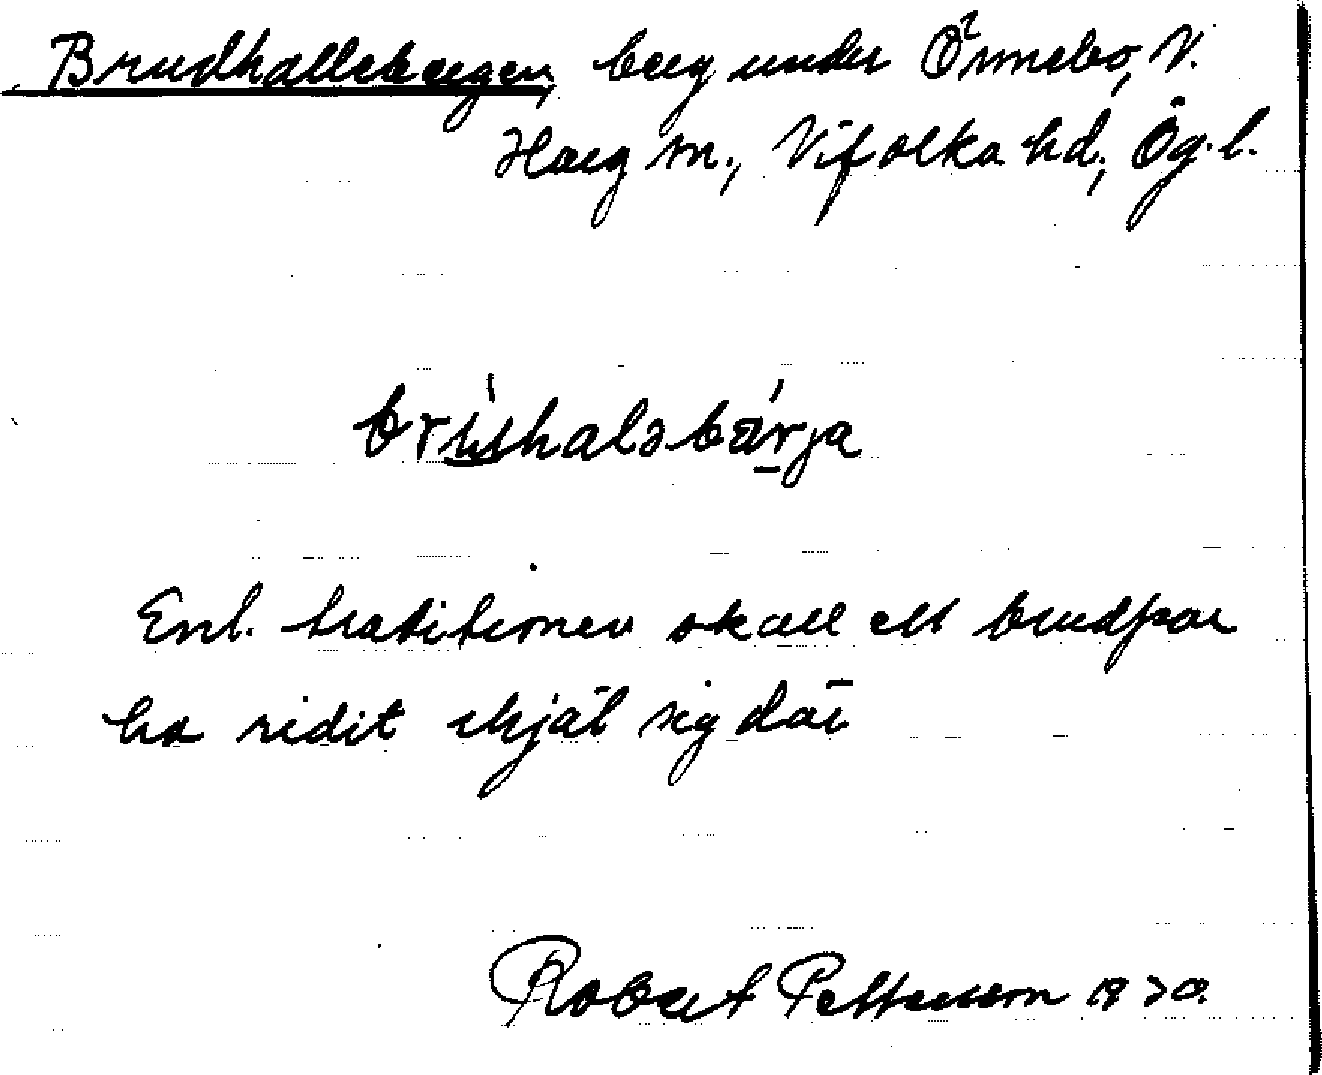 Brudhalleberget, berg under Örnebo, V.
Harg sn., Vifolka hd, Ög. l.
brʉ́shaləbärja
Enl. traditionen skall ett brudpar
ha ridit ihjäl sig där
Robert Pettersson 1930.